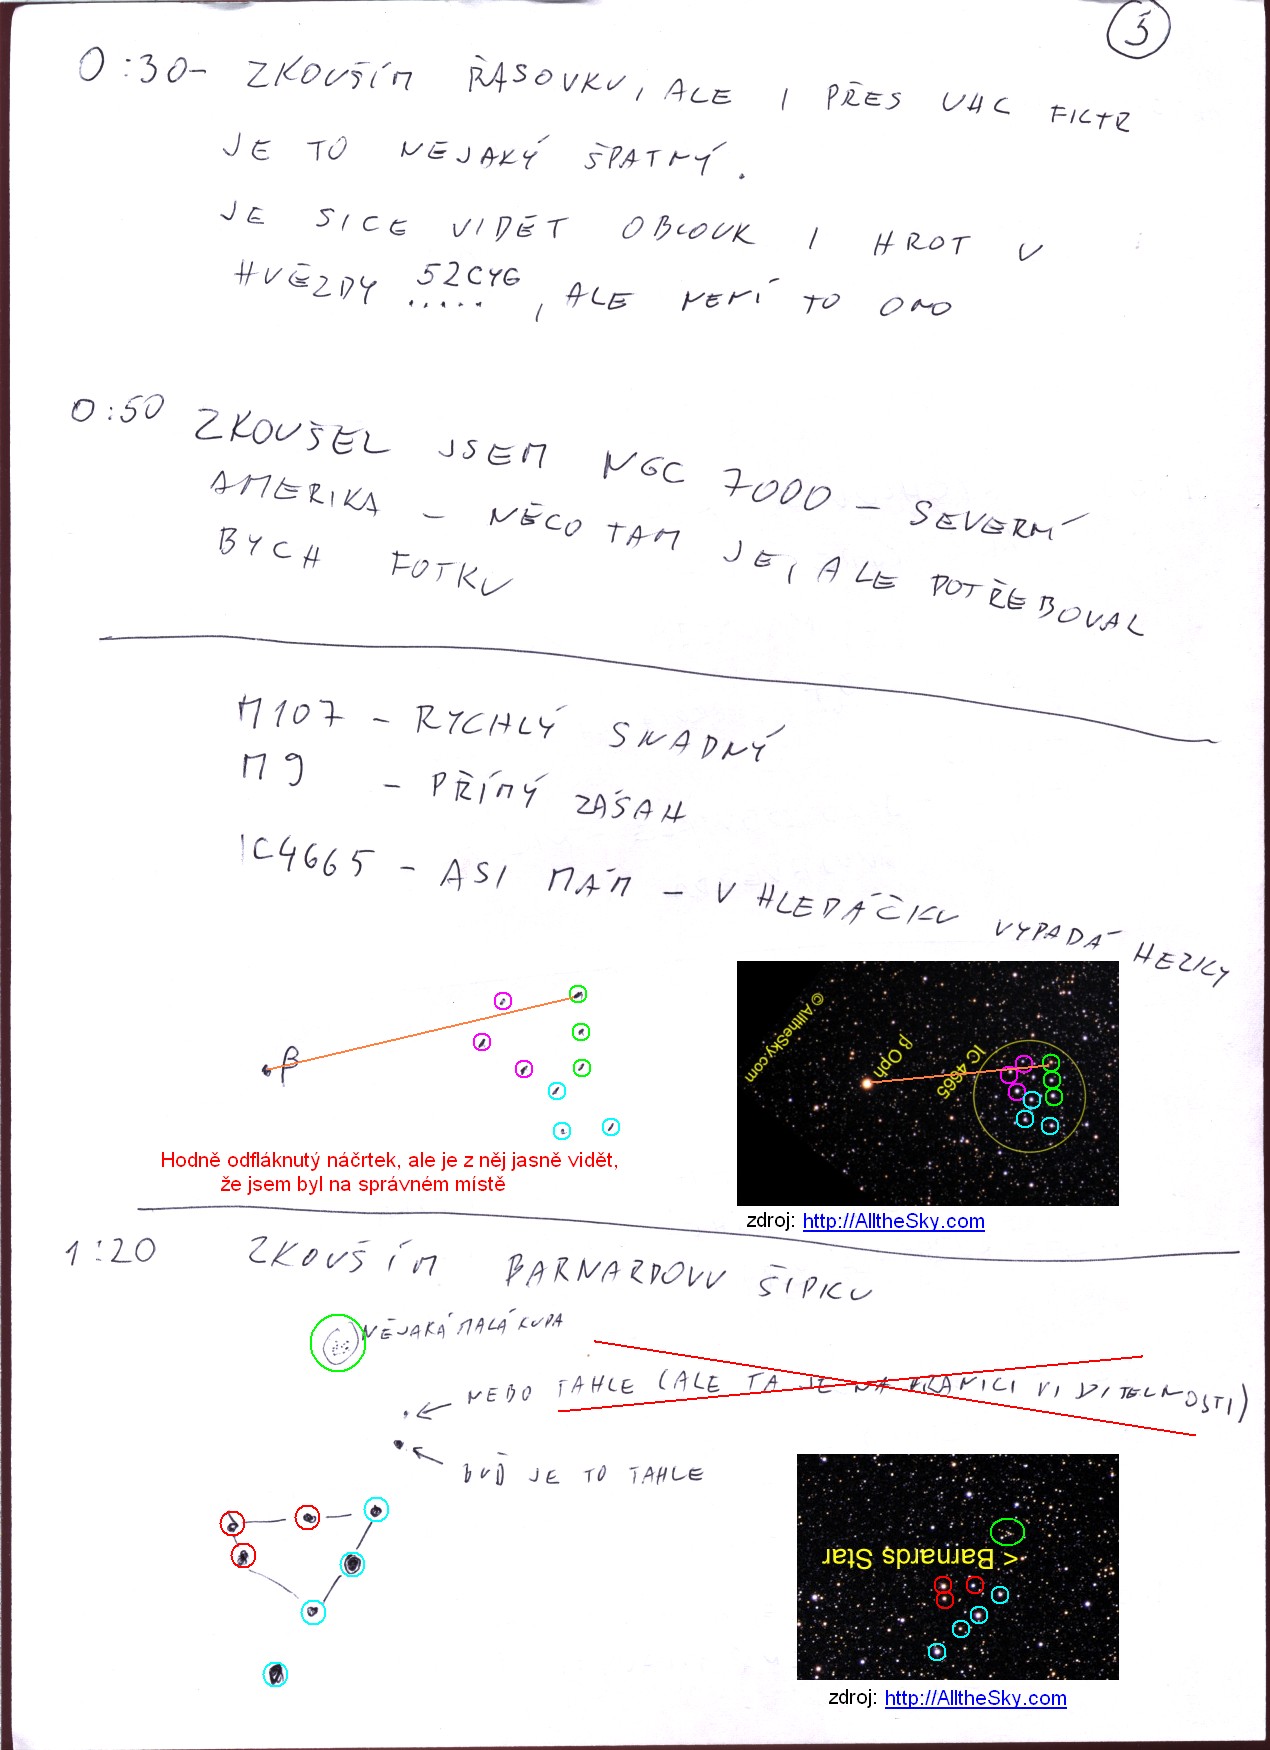 5
0:30- ZKOUŠÍM ŘASOVKU, ALE I PŘES UHC FILTR
JE TO NEJAKÝ ŠPATNÝ.
JE SICE VIDĚT OBLOUK I HROT U
HVĚZDY 52CYG, ALE NENÍ TO ONO
0:50 ZKOUŠEL JSEM NGC 7000 - SEVERNÍ
AMERIKA - NĚCO TAM JE, ALE POTŘEBOVAL
BYCH FOTKU
M107 - RYCHLÝ SNADNÝ
M9 - PŘÍMÝ ZÁSAH
IC4665 - ASI MÁM - V HLEDÁČKU VYPADÁ HEZKY
β
© AlltheSky.com
β Oph
IC 4665
Hodně odfláknutý náčrtek, ale je z něj jasně vidět,
že jsem byl na správném místě
zdroj: http://AlltheSky.com
1:20 ZKOUŠÍM BARNARDOVU ŠIPKU
NĚJAKÁ MALÁ KUPA
NEBO TAHLE (ALE TA JE NA HRANICI VIDITELNOSTI)
BUĎ JE TO TAHLE
< Barnards Star
zdroj: http://AlltheSky.com